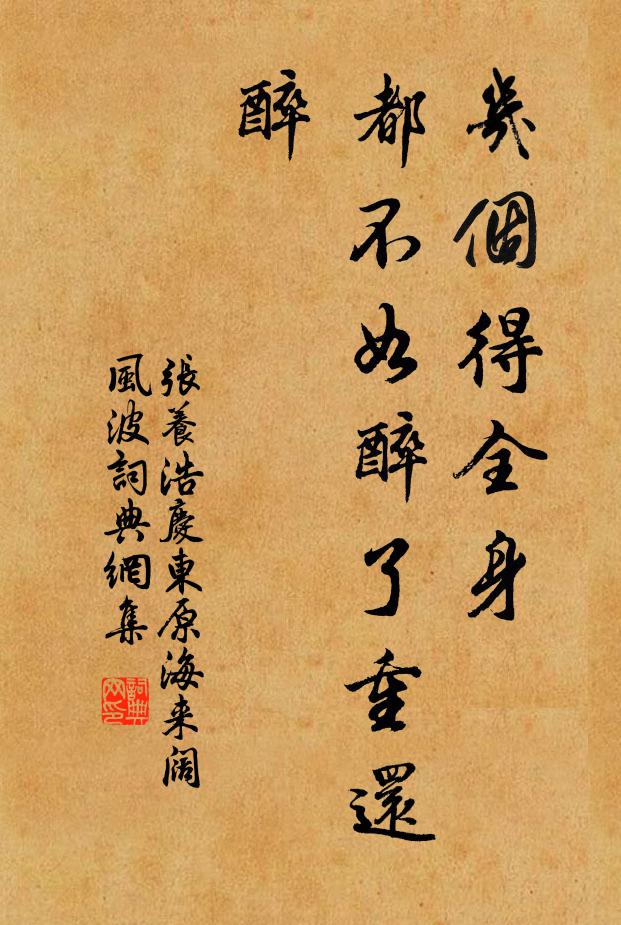 幾個得全身
都不如醉了重還
醉
張養浩慶東原海来闊
風波詞典網集
詞典
网印